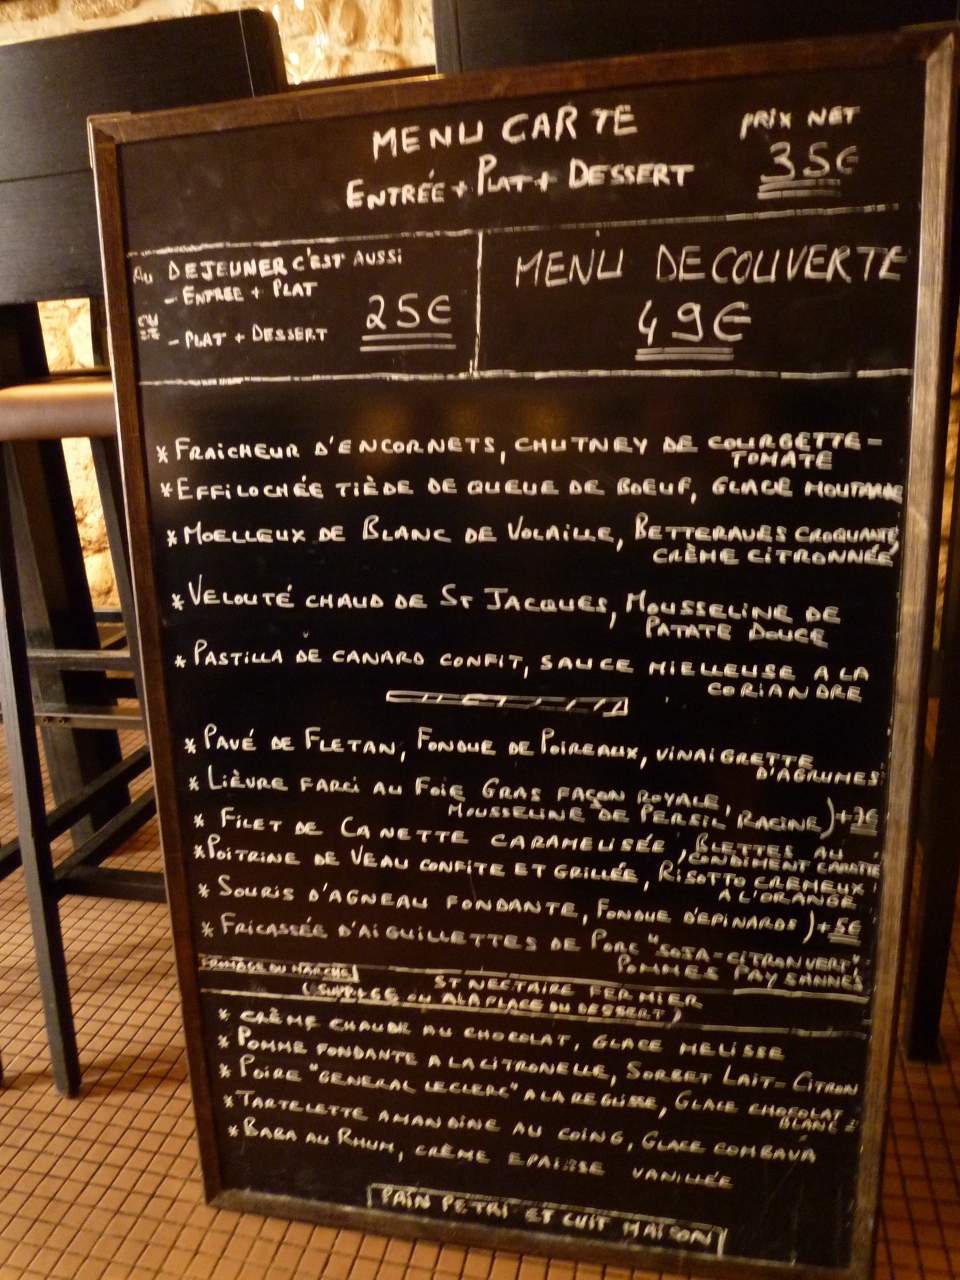 MENU CARTE
PRIX NET
ENTRÉE + PLAT + DESSERT
35€
AU DEJEUNER C'EST AUSSI
- ENTREE + PLAT
25€
- PLAT + DESSERT
MENU DECOUVERTE
49€
* FRAICHEUR D'ENCORNETS, CHUTNEY DE COURGETTE-
TOMATE
* EFFILOCHÉE TIÈDE DE QUEUE DE BOEUF, GLACE MOUTARDE
* MOELLEUX DE BLANC DE VOLAILLE, BETTERAVES CROQUANTE
CRÈME CITRONNÉE
* VELOUTÉ CHAUD DE ST JACQUES, MOUSSELINE DE
PATATE DOUCE
* PASTILLA DE CANARD CONFIT, SAUCE MIELLEUSE A LA
CORIANDRE
* PAVÉ DE FLETAN, FONDUE DE POIREAUX, VINAIGRETTE
D'AGRUMES
* LIÈVRE FARCI AU FOIE GRAS FAÇON ROYALE,
MOUSSELINE DE PERSIL RACINE)
* FILET DE CANETTE CARAMELISÉE, BLETTES AU
CONDIMENT CAROTTE
* POITRINE DE VEAU CONFITE ET GRILLÉE, RISOTTO CRÉMEUX
A L'ORANGE
* SOURIS D'AGNEAU FONDANTE, FONDUE D'EPINARDS ) +5€
* FRICASSÉE D'AIGUILLETTES DE PORC "SOJA-CITRON VERT"
POMMES PAYSANNES
FROMAGE DU MARCHÉ ST NECTAIRE FERMIER
( OU A LA PLACE DU DESSERT)
* CRÈME CHAUDE AU CHOCOLAT, GLACE MELISSE
* POMME FONDANTE A LA CITRONELLE, SORBET LAIT-CITRON
* POIRE "GENERAL LECLERC" A LA REGLISSE, GLACE CHOCOLAT
BLANC
* TARTELETTE AMANDINE AU COING, GLACE COMBAVA
* BABA AU RHUM, CRÈME EPAISSE VANILLÉE
PAIN PETRI ET CUIT MAISON